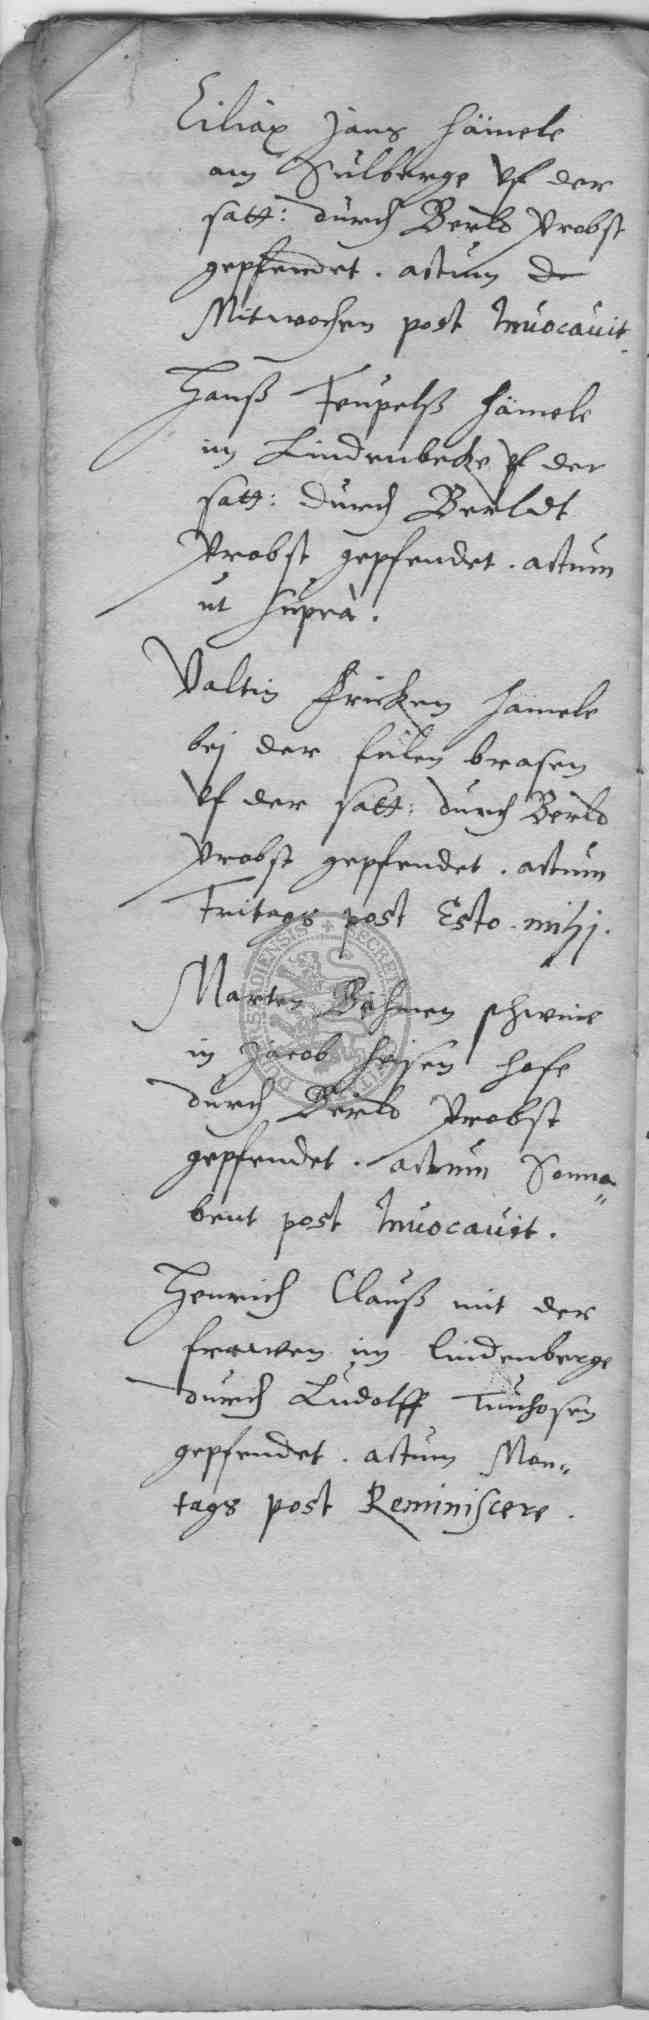 Ciliax Jans hämele
am Sülberge vf der
satt: dürch Berld Probst
gepfendet. actum de
Mitwochen post Invocavit.
Hanß Teupelß hämele
im Lindenbecke vf der
satt: dürch Berldt
Probst gepfendet. actum
ut supra.
Valtin Fricken hämele
bej der fulen brasen
vf der satt: dürch Berld
Probst gepfendet. actum
Fritags post Esto mihj.
Marten Böhmen schweine
in Jacob Heisen hofe
dürch Berld Probst
gepfendet. actum Sonna=
bent post Invocavit.
Henrich Clauß mit der
frawen im lindenberge
dürch Lüdolff
gepfendet. actum Mon=
tags post Reminiscere.
DUDERSTADIENSIS + SECRET CIVITATIS